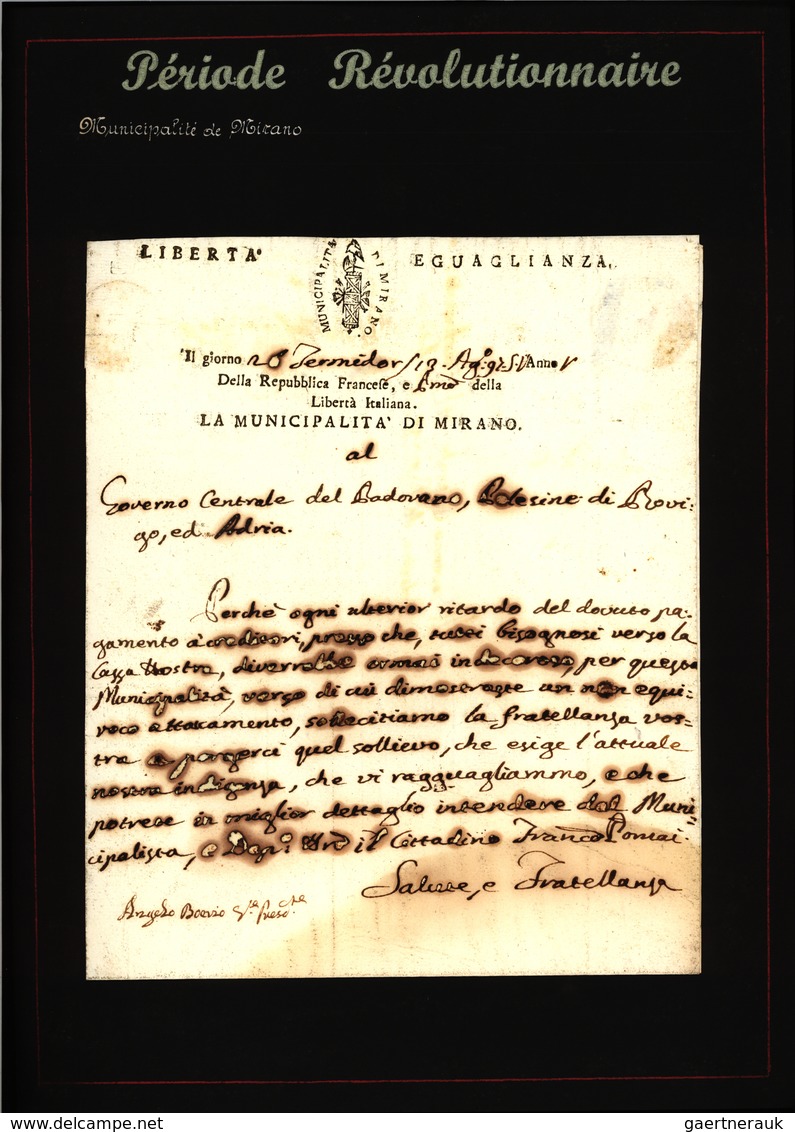 Période Révolutionnaire
Municipalité de Mirano
LIBERTA'
EGUAGLIANZA.
MUNICIPALITA DI MIRANO.
Il giorno 26 Termidor / 13. Ag. Anno V
Della Repubblica Francese, e Pmo della
Libertà Italiana.
LA MUNICIPALITA' DI MIRANO.
al
Governo Centrale del Padovano, Polesine di Rovi-
go, ed Adria.
Perchè ogni ulterior ritardo del dovuto pa-
gamento a' creditori, presso che, tutti bisognosi verso la
Cassa Nostra, diverrebbe ormai indecoroso, per questa
Municipalità, verso di cui dimostraste un non equi-
voco attacamento, sollecitiamo la fratellanza vos-
tra a porgerci quel sollievo, che esige l'attuale
nostra indigenza, che vi ragguagliammo, e che
potrete in miglior dettaglio intendere dal Muni-
cipalista, e il Cittadino Franco
Salute, e Fratellanza
Angelo
delcampe.net
gaertnerauk